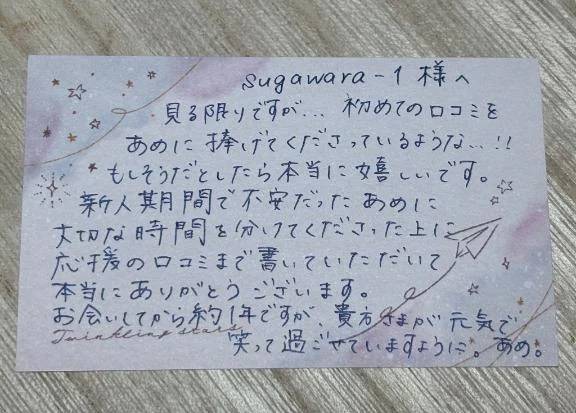 sugawara-1 様へ
見る限りですが… 初めての口コミを
あめに捧げてくださっているような…!!
もしそうだとしたら本当に嬉しいです。
新人期間で不安だったあめに
大切な時間を分けてくださった上に
応援の口コミまで書いていただいて
本当にありがとうございます。
お会いしてから約1年ですが、貴方さまが元気で
Twinkling stars
笑って過ごせていますように。あめ。